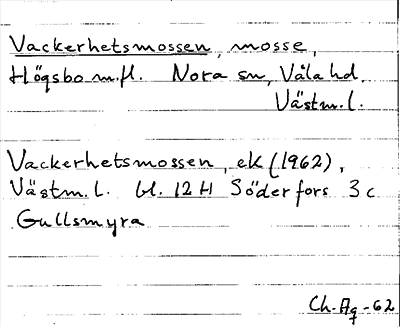 Vackerhetsmossen, mosse,
Högsbo m.fl. Nora sn, Våla hd,
Västm.l.
Vackerhetsmossen, ek (1962),
Västm.l. bl. 12 H Söderfors 3 c
Gullsmyra
Ch. Ag -62